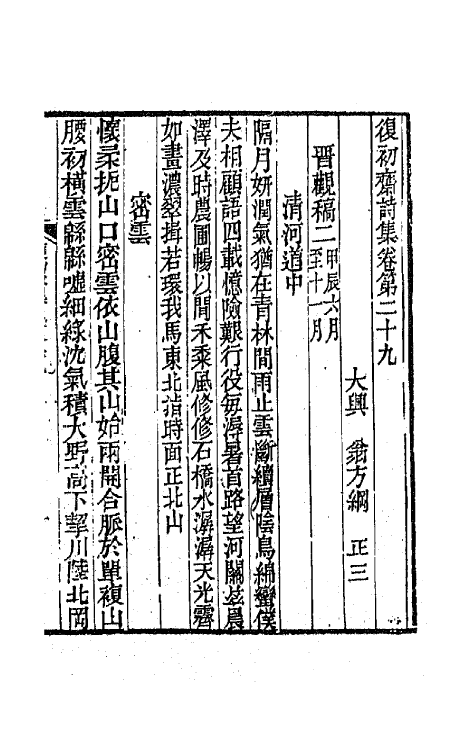 復初齋詩集卷第二十九
大興　翁方綱　正三
晉觀稿二甲辰六月至十一月
清河道中
隔月妍潤氣猶在青林間雨止雲斷續層陰鳥綿蠻僕
夫相顧語四載憶險艱行役每溽暑首路望河關茲晨
澤及時農圃暢以閒禾黍風修修石橋水潺潺天光霽
如畫濃翠揖若環我馬東北指時面正北山
密雲
懷柔扼山口密雲依山腹其山始兩開合脈於單複山
腰初橫雲緜緜噓細綠沈氣積大野高下挈川陸北岡